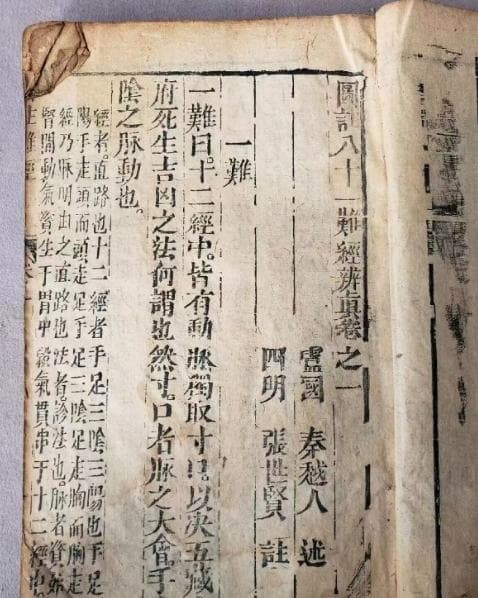 圖註八十一難經辨眞卷之一
盧國 秦越人 述
四明 張世賢 註
一難
一難曰。十二經中。皆有動脉。獨取寸口。以决五藏
府死生吉凶之法何謂也然。寸口者脉之大會。手
陰之脉動也。
經者。直路也十二經者手足三陰三陽也手足
陽手走頭而頭走足手足三陰足走胸而胸走
經乃脉所由之直路也法者。診法也。脉者資始
腎間動氣資生于胃中穀氣貫串于十二經中